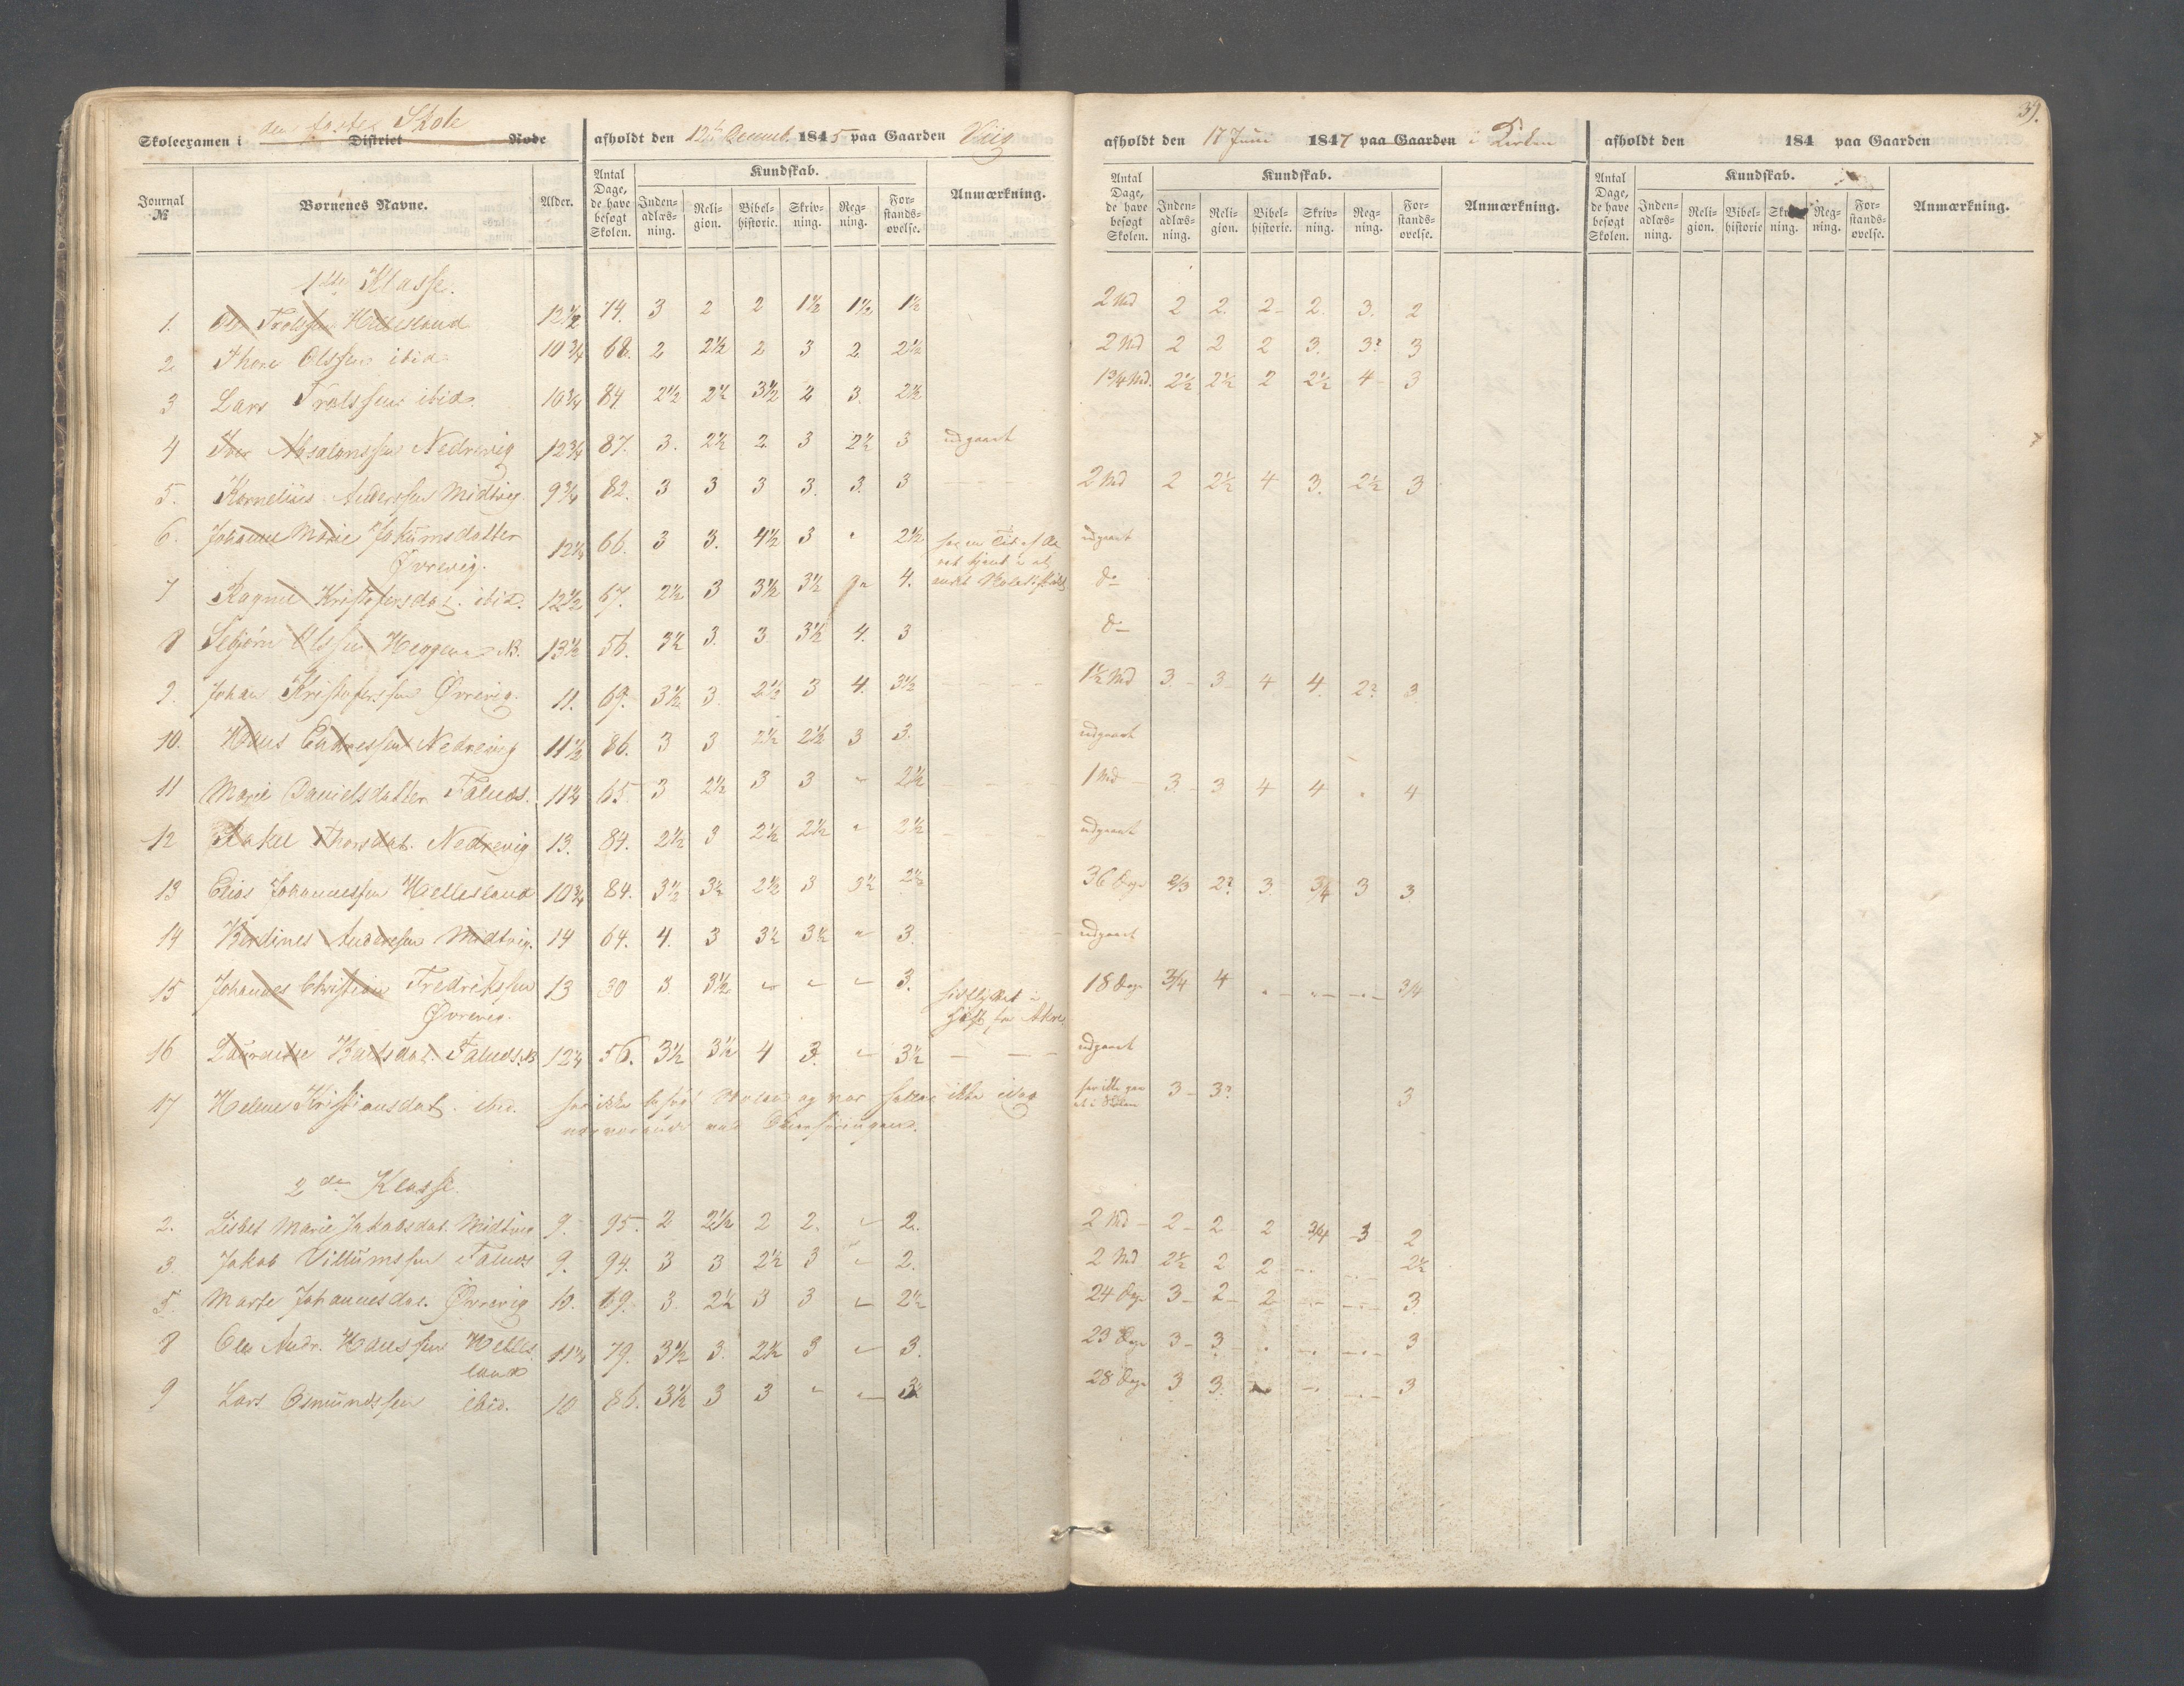 39.
Skoleexamen i den faste Skole District Rode afholdt den 12te Decemb. 1845 paa Gaarden Viig
afholdt den 17 Juni 1847 paa Gaarden i Kirken
afholdt den 184 paa Gaarden
Journal № Børnenes Navne. Alder. Antal Dage, de have besøgt Skolen. Kundskab. Inden-adlæs-ning. Reli-gion. Bibel-historie. Skriv-ning. Reg-ning. For-stands-øvelse. Anmærkning.
Antal Dage, de have besøgt Skolen. Kundskab. Inden-adlæs-ning. Reli-gion. Bibel-historie. Skriv-ning. Reg-ning. For-stands-øvelse. Anmærkning.
Antal Dage, de have besøgt Skolen. Kundskab. Inden-adlæs-ning. Reli-gion. Bibel-historie Skriv-ning. Reg-ning. For-stands-øvelse. Anmærkning.
1ste Klasse.
1. Trolssen Hellesland 12½ 74. 3 2 2 1½ 1½ 1½ 2 Md 2 2. 2 2. 3. 2
2. Thore Olssen ibid. 10¾ 68. 2 2½ 2 3 2 2½ 2 Md 2 2 2 3. 3? 3
3 Lars Trolssen ibid. 10¾ 84 2½ 2½ 3½ 2 3. 2½ 1¾ Md. 2½ 2½ 2 2½ 4 3
4 Iver Absalonssen Nedrevig 12¾ 87. 3. 2½ 2 3 2½ 3 udgaaet
5. Kornelius Anderssen Midtvig 9¾ 82. 3 3 3 3. 3. 3 2 Md 2 2½ 4 3. 2½ 3
6. Johanne Marie Jakumsdatter Øvrevig. 12¼ 66. 3 3. 4½ 3 " 2½ udgaaet
7 Ragnie Kristofersdat. ibid. 12½ 67. 2½ 3 3½ 3½ 4. do
8 Sebjørn Olssen Heggen NB. 13½ 56. 3½ 3. 3 3½ 4. 3 do
9. Johan Kristoferssen Øvrevig. 11. 69. 3½ 3. 2½ 3 4. 3½ 1½ Md 3 3 4 4. 2? 3
10. Hans Endressen Nedrevig 11½ 86. 3 3 2½ 2½ 3 3. udgaaet
11 Marie Danielsdatter Falnes. 11¾ 65 3 2½ 3 3 " 2½ 1 Md 3 3 4 4 " 4
12 Rakel Thorsdat. Nedrevig 13. 84. 2½ 3 2½ 2½ " 2½ udgaaet
13 Elias Johannessen Hellesland 10¾ 84. 3½ 3½ 2½ 3 3½ 2½ 36 Dage 2/3 2? 3. 3/4 3 3
14 Berdines Anderssen Midtvig. 14 64. 4. 3 3½ 3½ " 3. udgaaet
15 Johannes Christian Fredrikssen Øvrevig. 13 30 3. 3½ " " " 3. 18 Dage 3/4 4 " " " 3/4
16 Bårdsdat. Falnes NB 12¾ 56. 3½ 3½ 4 3. " 3½ udgaaet
17 Helene Kristiansdat. ibid. har ikke besøgt Skolen og var heller ikke idag 3 3? 3
nærværende ved Examineringen.
2den Klasse.
2. Lisbet Marie Jakobsdat. Midtvig 9. 95. 2 2½ 2 2. " 2. 2 Md 2 2 2 3/4 3 2
3. Jakob Villumssen Falnes 9. 94. 3 3 2½ 3 " 2. 2 Md 2½ 2 2 " " 2½
5. Marte Johannesdat. Øvrevig 10. 69. 3. 2½ 3 3 " 2½ 24 Dage 3 2 2 " " 3.
8 Ole Andr. Hanssen Hellesland 11½ 79. 3½ 3. 2½ 3 " 3. 23 Dage 3 3 " " " 3
9 Lars Osmundssen ibid. 10 86. 3½ 3 3 " " 3 28 Dage 3 3. " " " 3